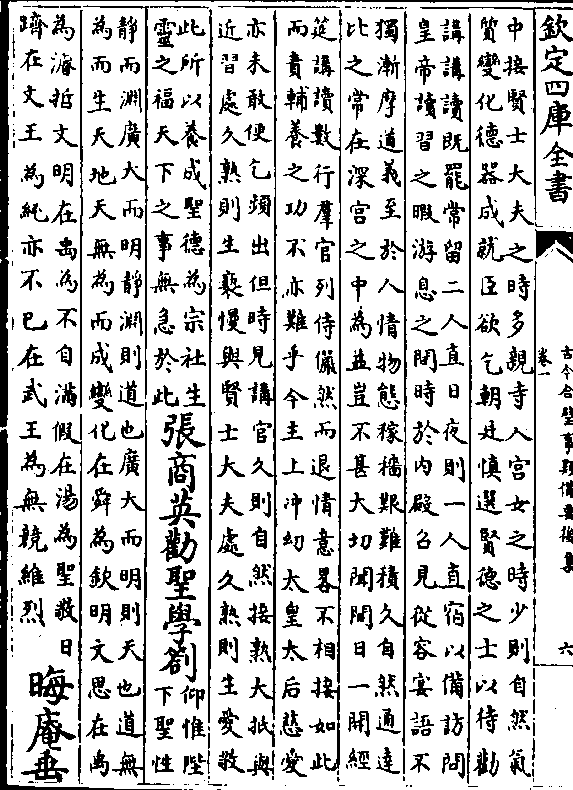 欽定四庫全書
古今合璧事類備要後集
卷一
六
中接賢士大夫之時多親寺人宮女之時少則自然氣
質變化德器成就臣欲乞朝廷慎選賢德之士以待勸
講講讀既罷常留二人直日夜則一人直宿以備訪問
皇帝讀習之暇游息之間時於内殿召見從容宴語不
獨漸摩道義至於人情物態稼穡艱難積久自然通達
比之常在深宮之中為益豈不甚大切聞間日一開經
筵講讀數行羣官列侍儼然而退情意畧不相接如此
而責輔養之功不亦難乎今主上冲幼太皇太后慈愛
亦未敢便乞頻出但時見講官久則自然接熟大抵與
近習處久熟則生褻慢與賢士大夫處久熟則生愛敬
此所以養成聖德為宗社生
靈之福天下之事無急於此
張商英勸聖學劄
仰惟陛
下聖性
静而淵廣大而明静淵則道也廣大而明則天也道無
為而生天地天無為而成變化在舜為欽明文思在禹
為濬哲文明在禹為不自滿假在湯為聖敬日
躋在文王為純亦不已在武王為無競維烈
晦庵垂